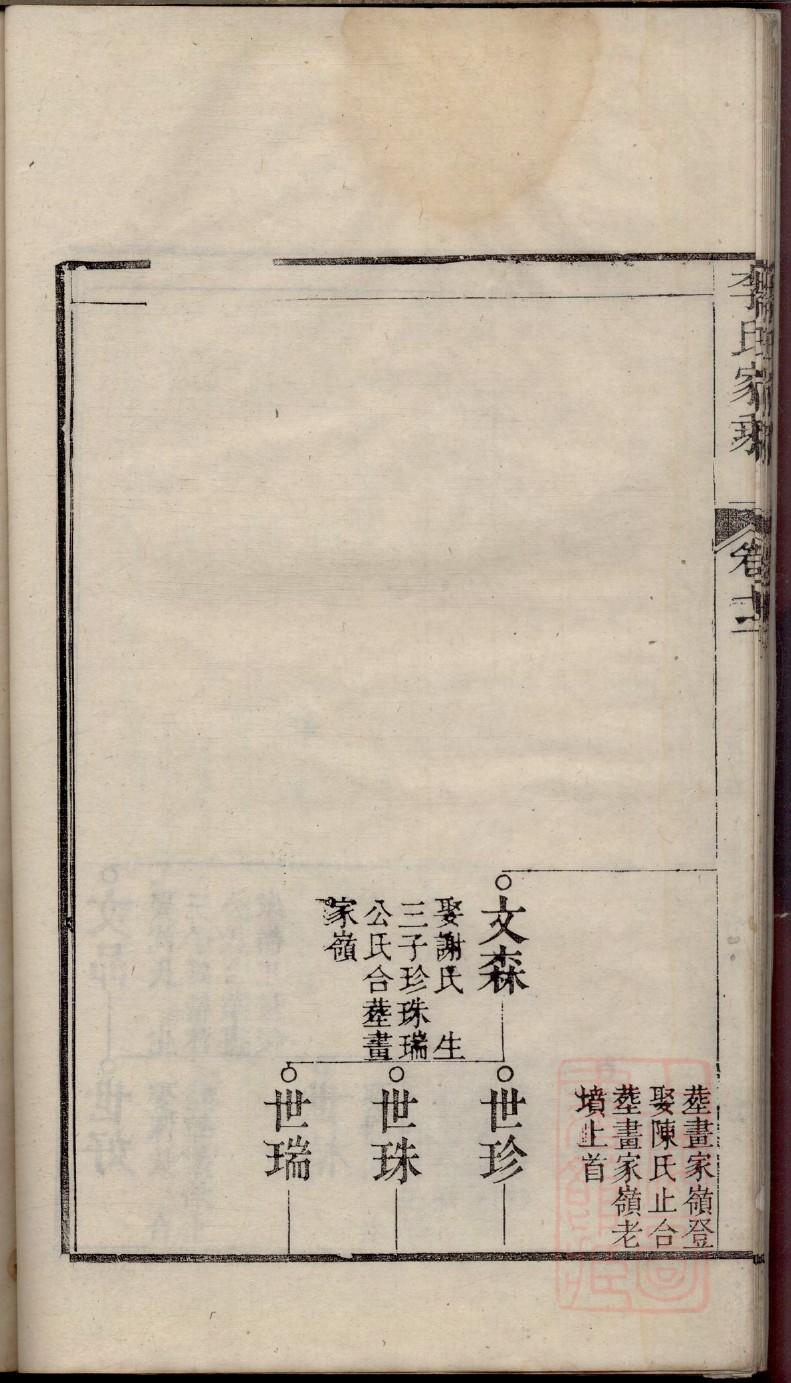 李氏家乘
卷十二
塟畫家嶺登
娶陳氏止合
塟畫家嶺老
墳上首
文森
娶謝氏 生
三子珍珠瑞
公氏合塟畫
家嶺
世珍
世珠
世瑞